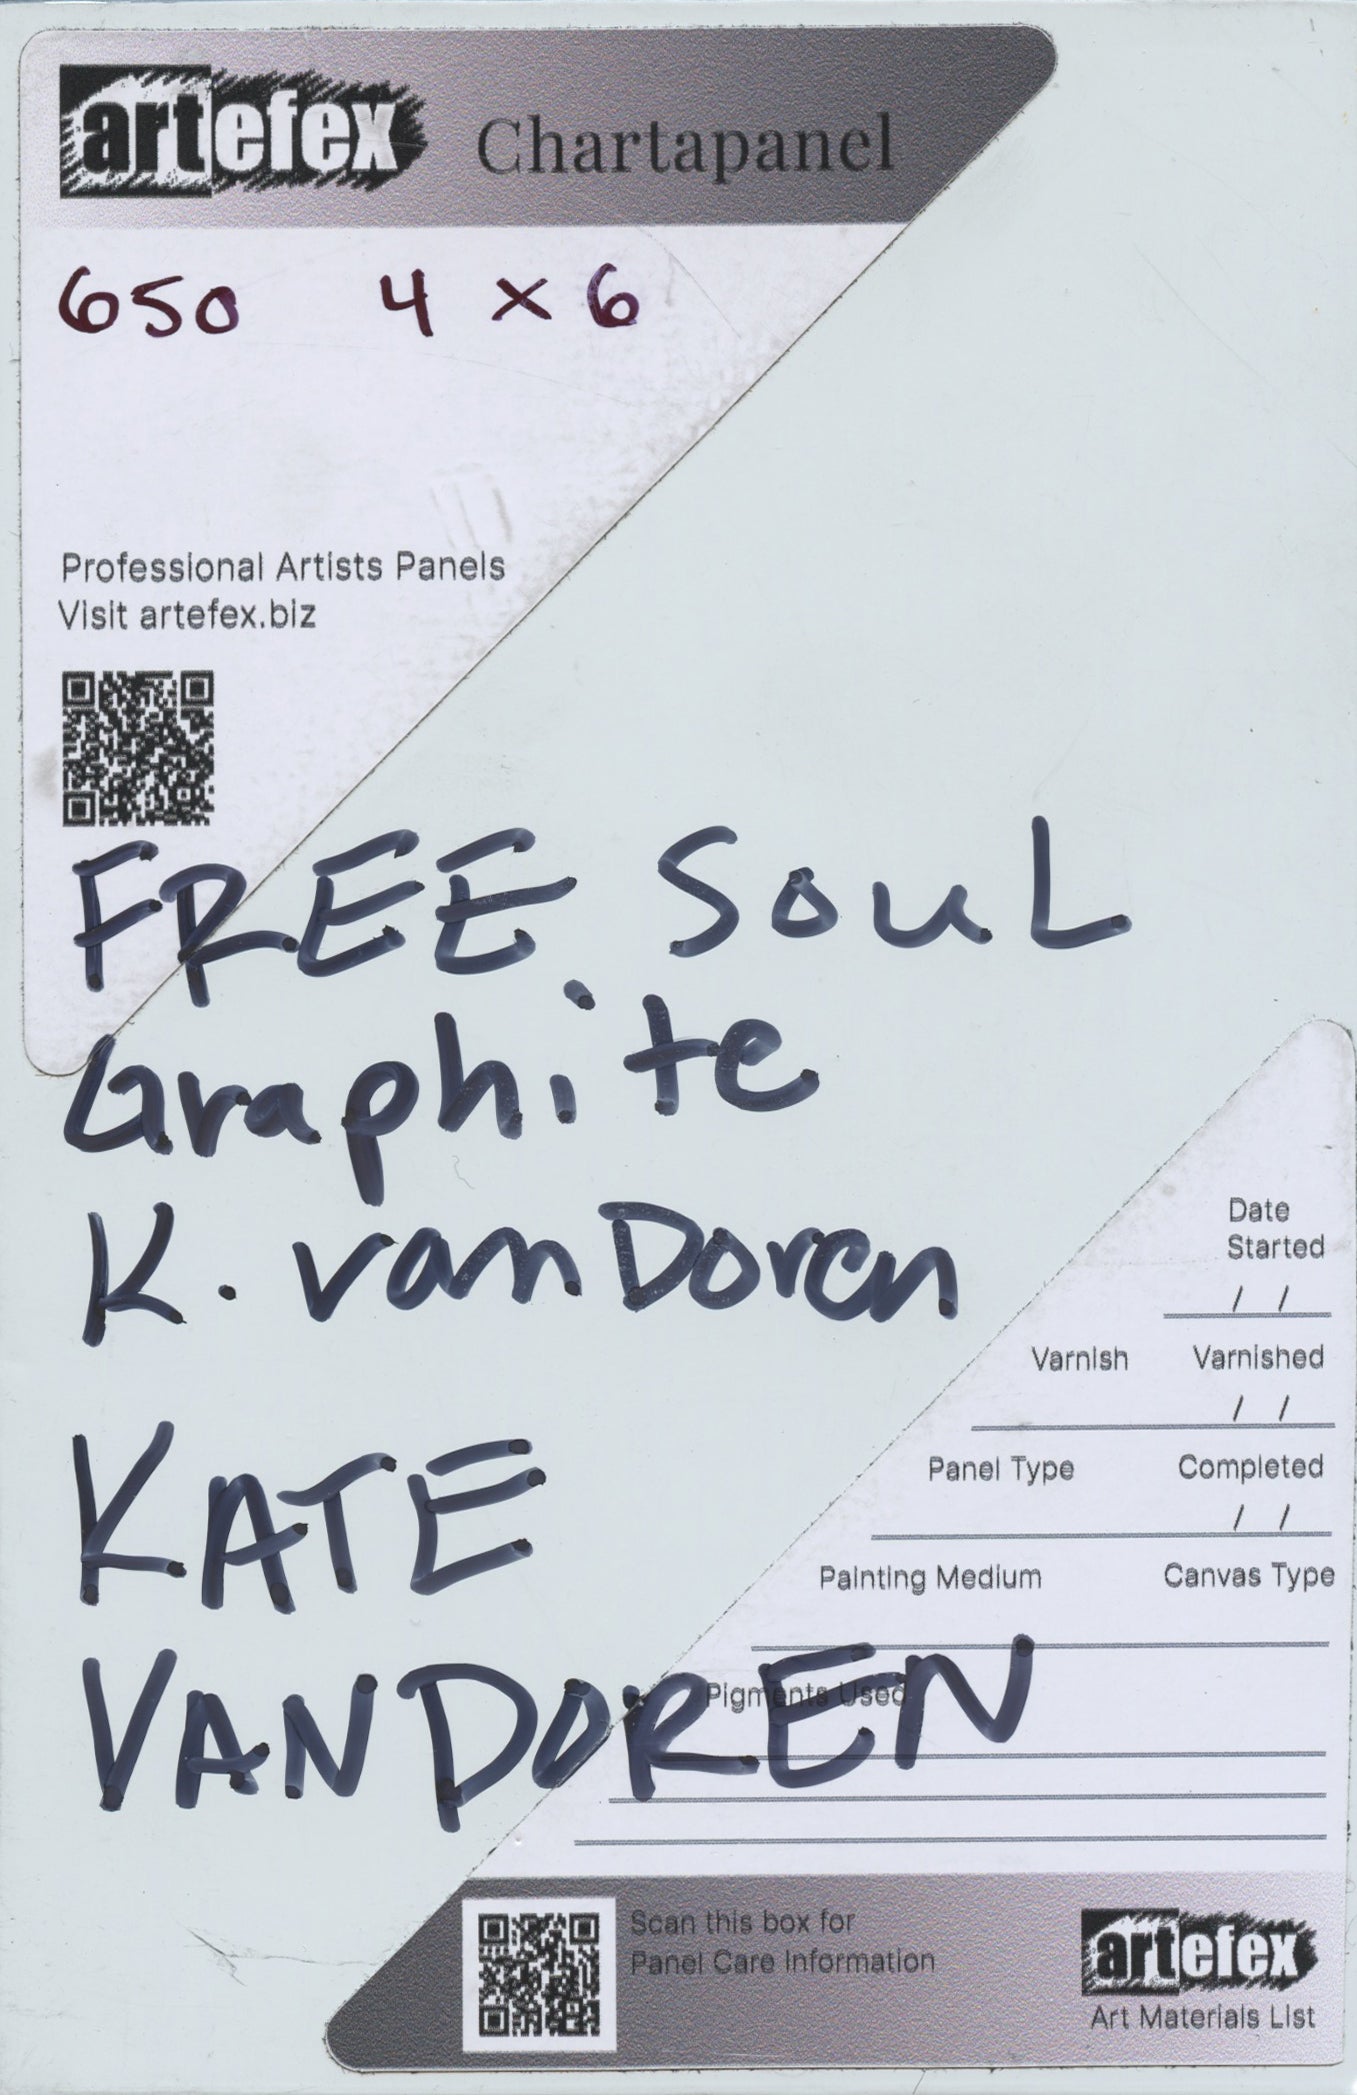 artefex Chartapanel
650 4 x 6
Professional Artists Panels
Visit artefex.biz
FREE SouL
Graphite
K. van Doren
KATE
VAN DOREN
Date
Started
/ /
Varnish Varnished
/ /
Panel Type Completed
/ /
Painting Medium Canvas Type
Pigments Used
Scan this box for
Panel Care Information
artefex
Art Materials List